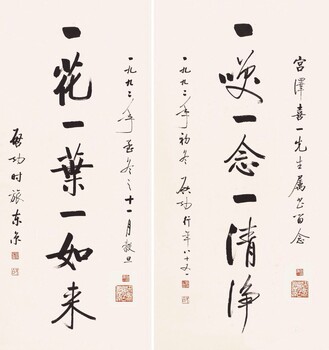 宫澤喜一先生属书留念
一咲一念一清净
一九九二年初冬啟功行年八十又一
一九九二年孟冬之十一月穀旦
一花一葉一如来
啟功时旅东京